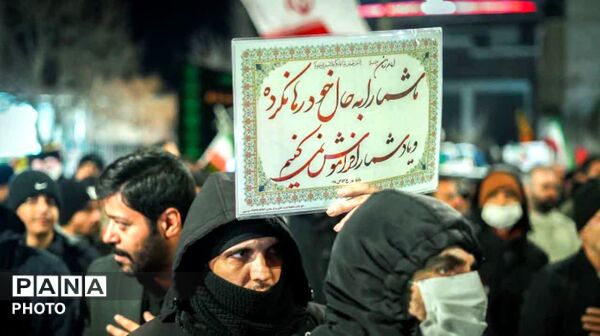 امام زمان
ما شما را به حال خود رها نکرده
و یاد شما را فراموش نمی کنیم
PANA
PHOTO